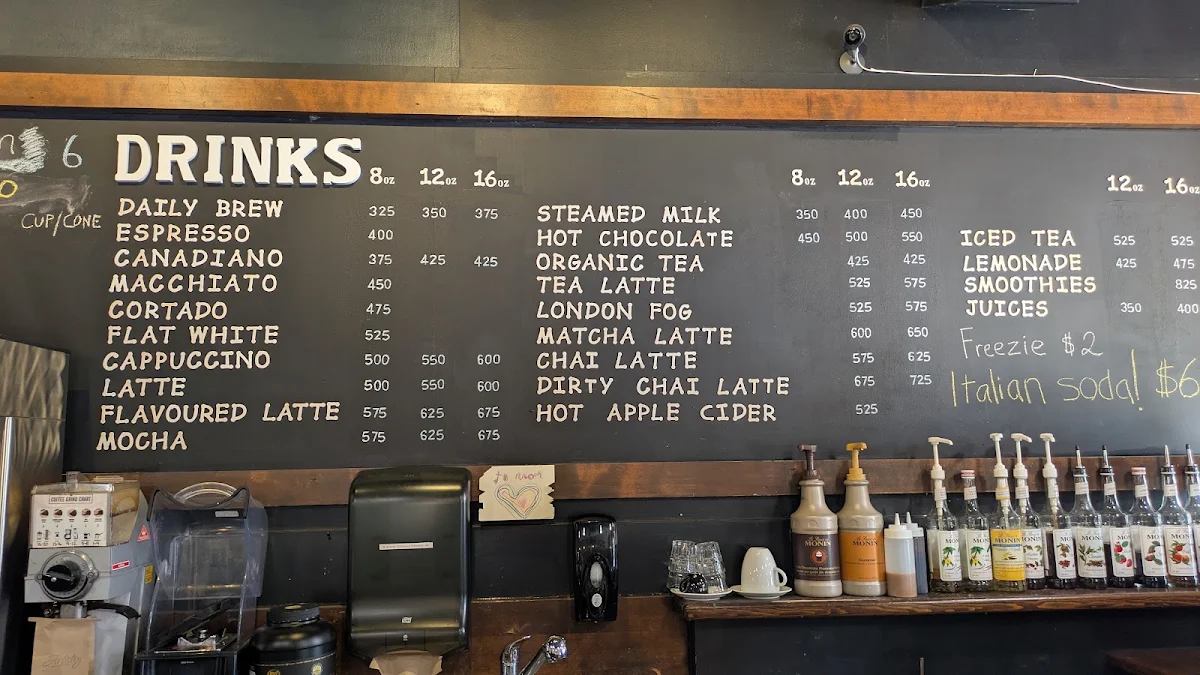 6
CUP/CONE
DRINKS 8oz 12oz 16oz
DAILY BREW 325 350 375
ESPRESSO 400
CANADIANO 375 425 425
MACCHIATO 450
CORTADO 475
FLAT WHITE 525
CAPPUCCINO 500 550 600
LATTE 500 550 600
FLAVOURED LATTE 575 625 675
MOCHA 575 625 675
8oz 12oz 16oz
STEAMED MILK 350 400 450
HOT CHOCOLATE 450 500 550
ORGANIC TEA 425 425
TEA LATTE 525 575
LONDON FOG 525 575
MATCHA LATTE 600 650
CHAI LATTE 575 625
DIRTY CHAI LATTE 675 725
HOT APPLE CIDER 525
12oz 16oz
ICED TEA 525 525
LEMONADE 425 475
SMOOTHIES 825
JUICES 350 400
Freezie $2
Italian soda! $6
COFFEE GRIND CHART
to mom
MONIN
MONIN
MONIN